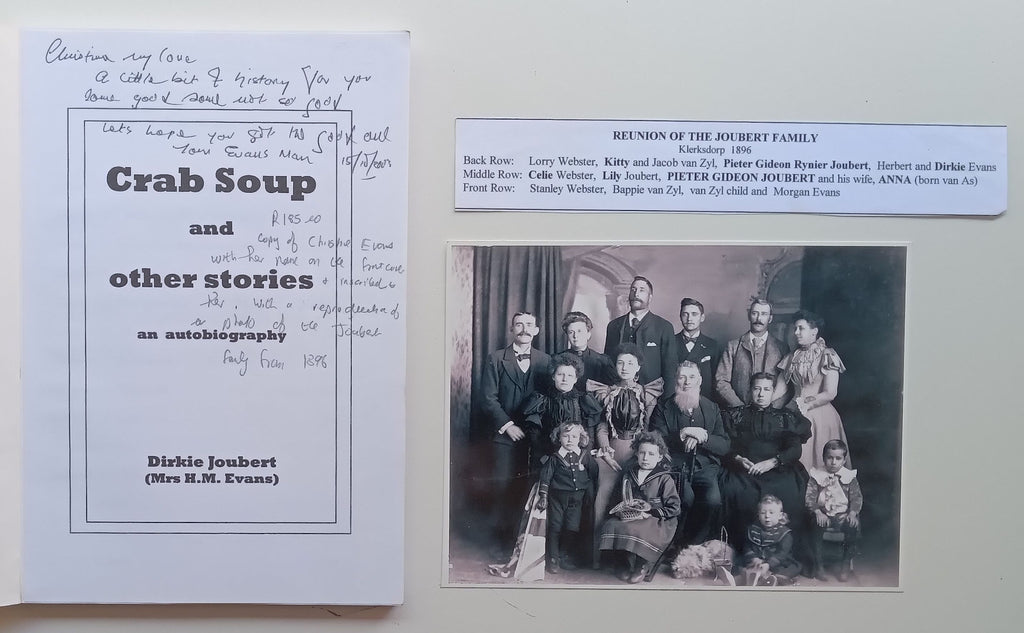 Christina my love
A little bit of history for you
Some good some not so good
Lets hope you got the good
Tom Evans Man 15/10/2003
Crab Soup
and
other stories
an autobiography
R185-00
copy of Christine Evans
with her name on the front cover
& inscribed to
her, with a reproduction of
a photo of the Joubert
family from 1896
Dirkie Joubert
(Mrs H.M. Evans)
REUNION OF THE JOUBERT FAMILY
Klerksdorp 1896
Back Row: Lorry Webster, Kitty and Jacob van Zyl, Pieter Gideon Rynier Joubert, Herbert and Dirkie Evans
Middle Row: Celie Webster, Lily Joubert, PIETER GIDEON JOUBERT and his wife, ANNA (born van As)
Front Row: Stanley Webster, Bappie van Zyl, van Zyl child and Morgan Evans